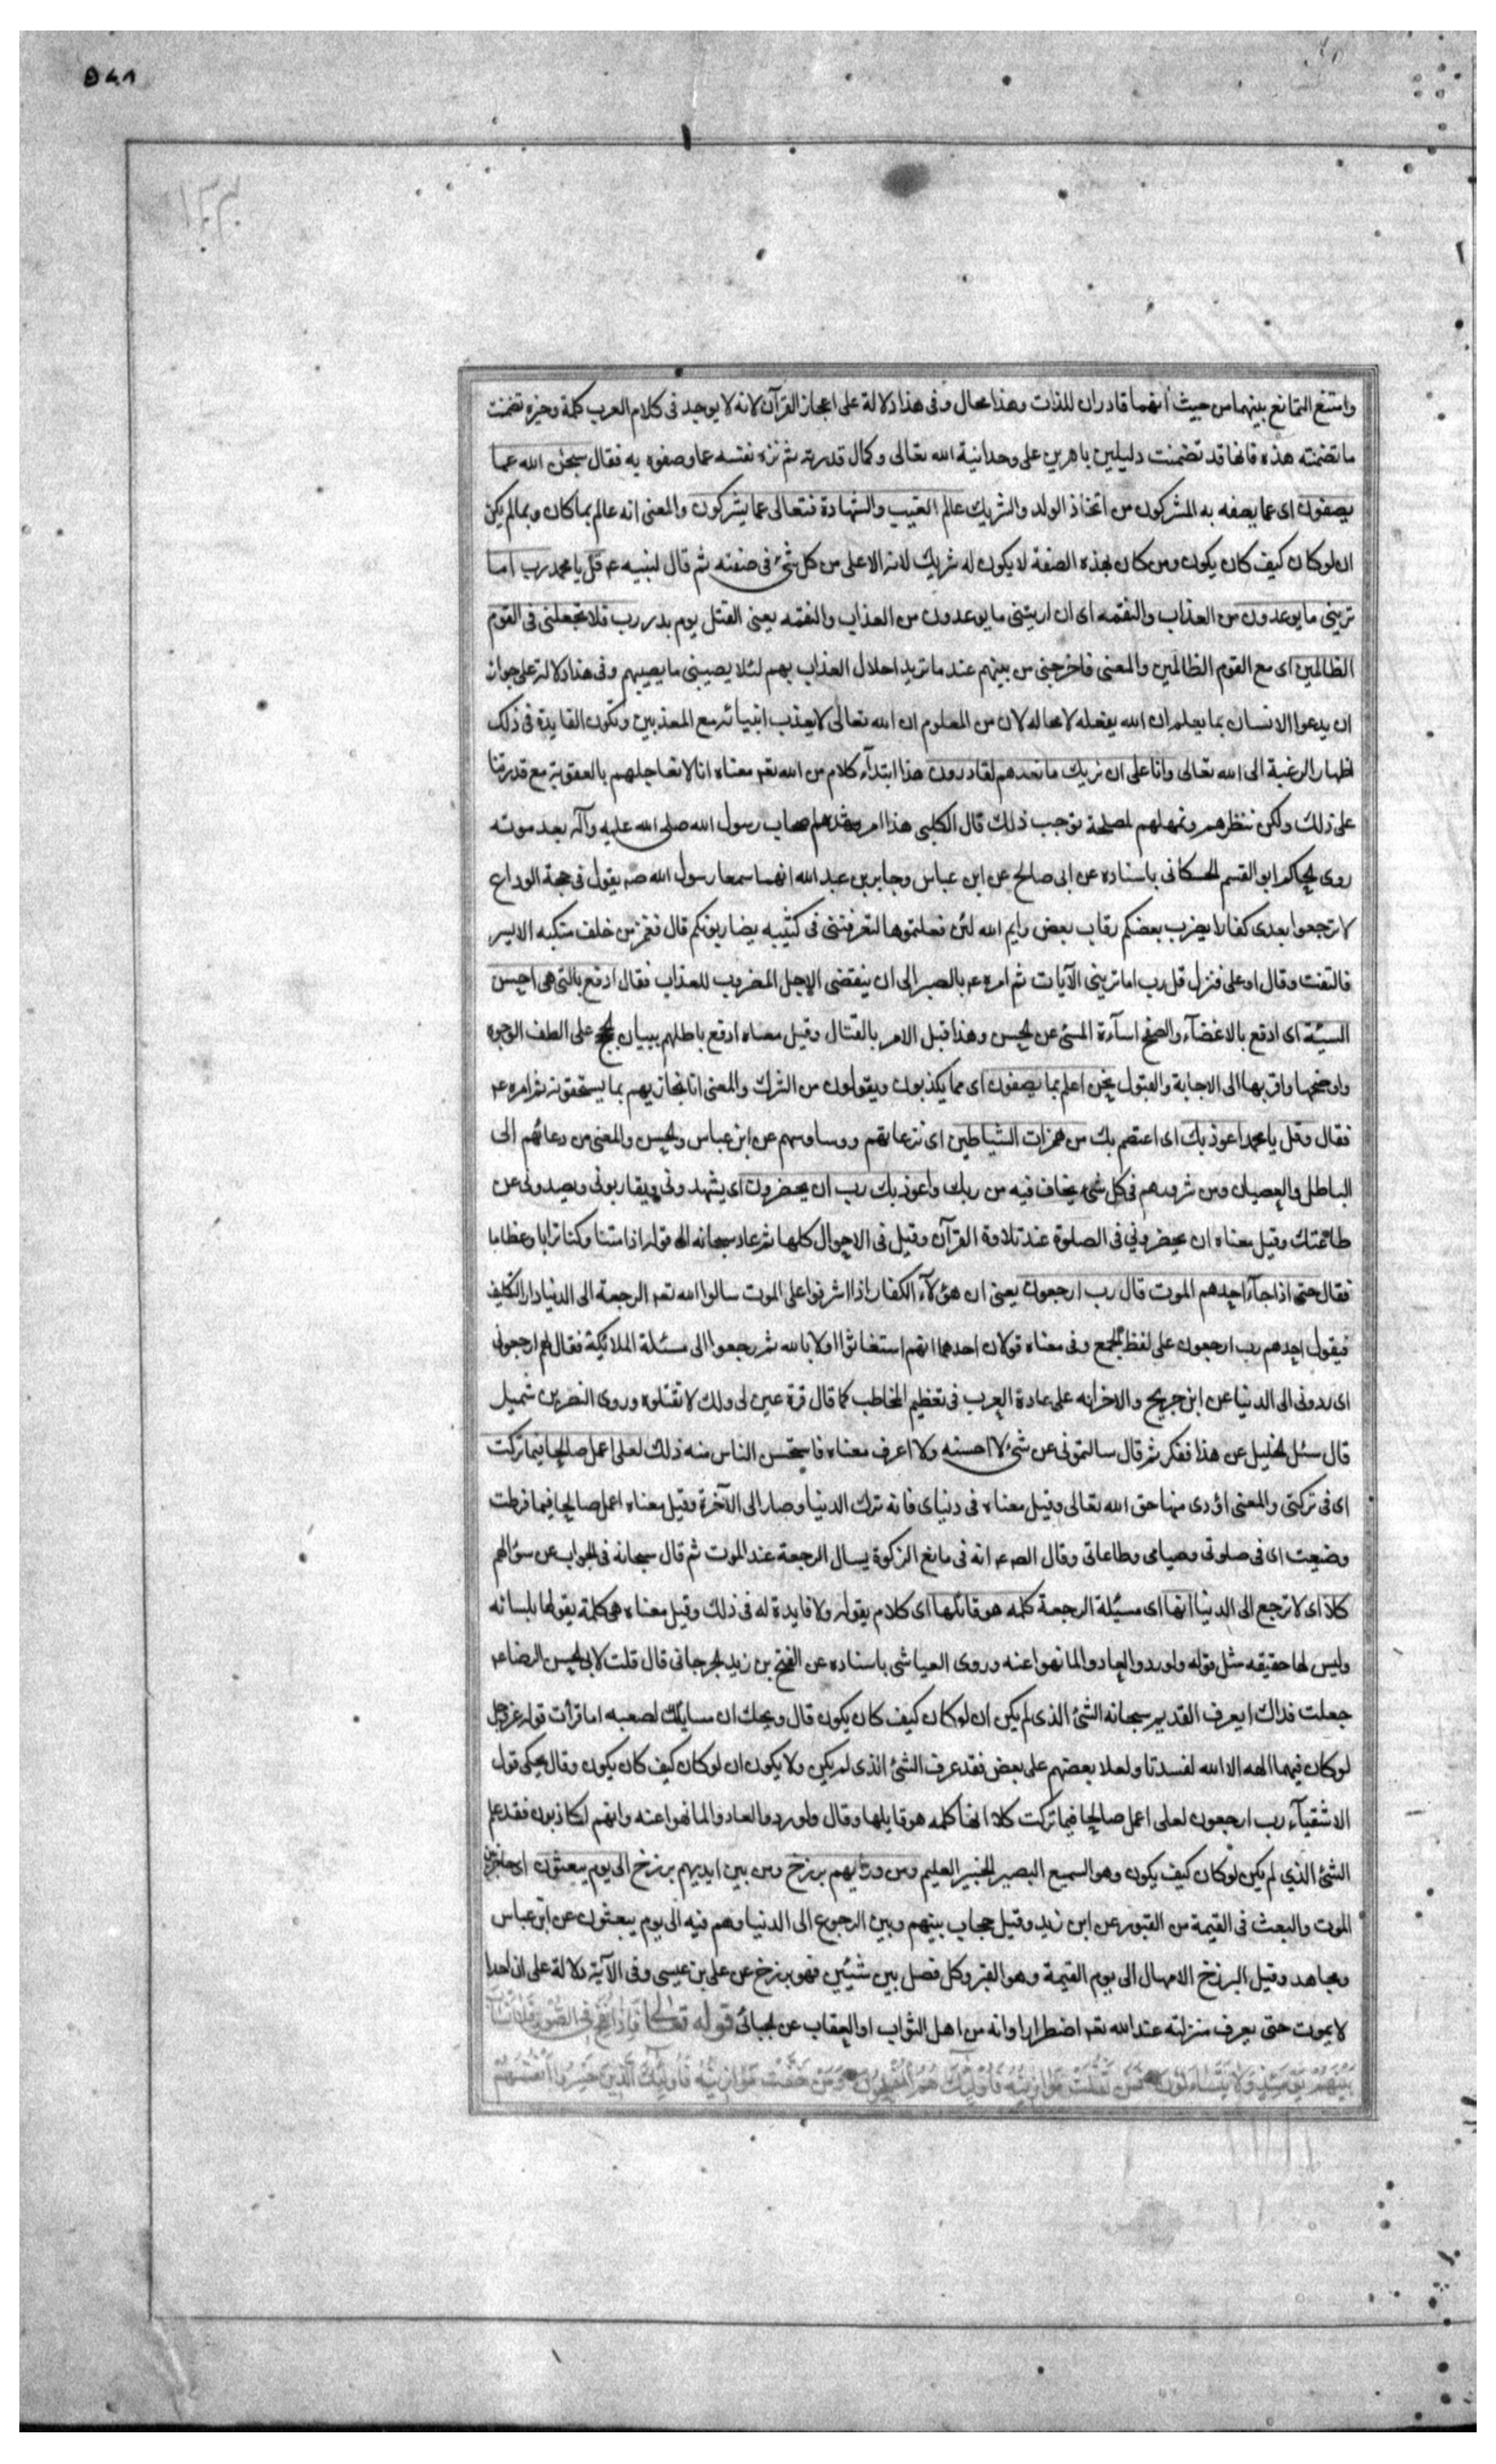 وامتنع التمانع بينهما من حيث انهما قادران للذات وهذا محال وفى هذا دلالة على اعجاز القرآن لانه لا يوجد فى كلام العرب كلمة وجيزه تضمنت
ما تضمنته هذه فانها قد تضمنت دليلين باهرين على وحدانية الله تعالى وكمال قدرته ثم نزه نفسه عما وصفوه به فقال سبحن الله عما
يصفون اى عما يصفه به المشركون من اتخاذ الولد والشريك عالم الغيب والشهادة فتعالى عما يشركون والمعنى انه عالم بما كان وبما لم يكن
ان لو كان كيف كان يكون ومن كان بهذه الصفة لا يكون له شريك لانه الاعلى من كل شىء فى صفته ثم قال لنبيه عم قل يا محمد رب اما
ترينى ما يوعدون من العذاب والنقمه اى ان اريتنى ما يوعدون من العذاب والنقمه يعنى القتل يوم بدر رب فلا تجعلنى فى القوم
الظالمين اى مع القوم الظالمين والمعنى فاخرجنى من بينهم عند ما تريد احلال العذاب بهم لئلا يصيبنى ما يصيبهم وفى هذا دلالة على جواز
ان يدعوا الانسان بما يعلم ان الله يفعله لا محاله لان من المعلوم ان الله تعالى لا يعذب انبيائه مع المعذبين وتكون الفايدة فى ذلك
اظهار الرغبة الى الله تعالى وانا على ان نريك ما نعدهم لقادرون هذا ابتدآء كلام من الله تعم معناه انا لا نعاجلهم بالعقوبة مع قدرتنا
على ذلك ولكن ننظرهم ونمهلهم لمصلحة توجب ذلك قال الكلبى هذا امر شهدها صحاب رسول الله صلى الله عليه وآله بعد موته
روى الحاكم ابو القسم الحسكانى باسناده عن ابى صالح عن ابن عباس وجابر بن عبد الله انهما سمعا رسول الله صم يقول فى حجة الوداع
لا ترجعوا بعدى كفارا يضرب بعضكم رقاب بعض وايم الله لئن فعلتموها لتعرفننى فى كتيبه يضاربونكم قال فغمز من خلف منكبه الايسر
فالتفت وقال او على فنزل قل رب اما ترينى الآيات ثم امره عم بالصبر الى ان ينقضى الاجل المضروب للعذاب فقال ادفع بالتى هى احسن
السيئة اى ادفع بالاغضآء والصفح اسآءة المسئ عن الحسن وهذا قبل الامر بالقتال وقيل معناه ادفع باطلهم ببيان الحجج على الطف الوجوه
واوضحها واقربها الى الاجابة والقبول نحن اعلم بما يصفون اى مما يكذبون ويقولون من الشرك والمعنى انا نجازيهم بما يستحقونه ثم امره عم
فقال وقل يا محمد اعوذ بك اى اعتصم بك من همزات الشياطين اى نزعاتهم ووساوسهم عن ابن عباس والحسن والمعنى من دعائهم الى
الباطل والعصيان ومن شرورهم فى كل شىء يخاف فيه من ربك واعوذ بك رب ان يحضرون اى يشهدونى ويقاربونى ويصدونى عن
طاعتك وقيل معناه ان يحضرونى فى الصلوة عند تلاوة القرآن وقيل فى الاحوال كلها ثم عاد سبحانه الى قوله اذا متنا وكنا ترابا وعظاما
فقال حتى اذا جآء احدهم الموت قال رب ارجعون يعنى ان هؤلآء الكفار اذا اشرفوا على الموت سالوا الله تعم الرجعة الى الدنيا دار التكليف
فيقول احدهم رب ارجعون على لفظ الجمع وفى معناه قولان احدهما انهم استغاثوا اولا بالله ثم رجعوا الى مسئلة الملائكة فقال لهم ارجعونى
اى ردونى الى الدنيا عن ابن جريج والاخر انه على عادة العرب فى تعظيم المخاطب كما قال قرة عين لى ولك لا تقتلوه وروى النضر بن شميل
قال سئل الخليل عن هذا ففكر ثم قال سالتمونى عن شىء لا احسنه ولا اعرف معناه فاستحسن الناس منه ذلك لعلى اعمل صالحا فيما تركت
اى فى تركتى والمعنى اؤدى منها حق الله تعالى وقيل معناه فى دنياى فانه ترك الدنيا وصار الى الآخرة وقيل معناه اعمل صالحا فيما فرطت
وضيعت اى فى صلوتى وصيامى وطاعاتى وقال الص عم انه فى مانع الزكوة يسال الرجعة عند الموت ثم قال سبحانه فى الجواب عن سؤالهم
كلا اى لا ترجع الى الدنيا انها اى مسئلة الرجعة كلمه هو قائلها اى كلام يقوله ولا فايدة له فى ذلك وقيل معناه هى كلمة يقولها بلسانه
وليس لها حقيقه مثل قوله ولو ردوا لعادوا لما نهوا عنه وروى العياشى باسناده عن الفتح بن زيد الجرجانى قال قلت لابى الحسن الرضا عم
جعلت فداك ايعرف القديم سبحانه الشئ الذى لم يكن ان لو كان كيف كان يكون قال ويحك ان مسايلك لصعبه اما قرأت قوله عز وجل
لو كان فيهما الهه الا الله لفسدتا ولعلا بعضهم على بعض فقد عرف الشئ الذى لم يكن ولا يكون ان لو كان كيف كان يكون وقال يحكى قول
الاشقيآء رب ارجعون لعلى اعمل صالحا فيما تركت كلا انها كلمه هو قايلها وقال ولو ردوا لعادوا لما نهوا عنه وانهم لكاذبون فقد علم
الشئ الذي لم يكن لو كان كيف يكون وهو السميع البصير الخبير العليم ومن ورآئهم برزخ ومن بين ايديهم برزخ الى يوم يبعثون اى حاجز بين
الموت والبعث فى القيمة من القبور عن ابن زيد وقيل حجاب بينهم وبين الرجوع الى الدنيا وهم فيه الى يوم يبعثون عن ابن عباس
ومجاهد وقيل البرزخ الامهال الى يوم القيمة وهو القبر وكل فصل بين شيئين فهو برزخ عن على بن عيسى وفى الآية دلالة على ان احدا
لا يموت حتى يعرف منزلته عند الله تعم اضطرارا وانه من اهل الثواب او العقاب عن الجبائى قوله تعالى فَإِذَا نُفِخَ فِي الصُّورِ فَلَا أَنْسَابَ
بَيْنَهُمْ يَوْمَئِذٍ وَلَا يَتَسَاءَلُونَ فَمَنْ ثَقُلَتْ مَوَازِينُهُ فَأُولَئِكَ هُمُ الْمُفْلِحُونَ وَمَنْ خَفَّتْ مَوَازِينُهُ فَأُولَئِكَ الَّذِينَ خَسِرُوا أَنْفُسَهُمْ